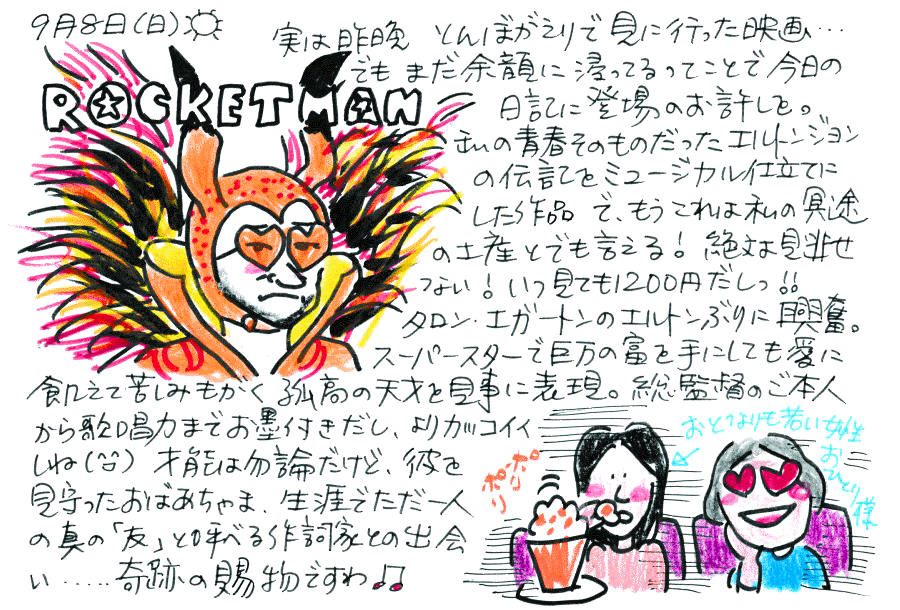 9月8日(日)
実は昨晩 とんぼがえりで見に行った映画…
ROCKETMAN
でもまだ余韻に浸ってるってことで今日の
日記に登場のお許しを。
私の青春そのものだったエルトンジョン
の伝記をミュージカル仕立てに
した作品で、もうこれは私の冥途
の土産とでも言える! 絶対見逃せ
ない! いつ見ても1200円だしっ!!
タロン・エガートンのエルトンぶりに興奮。
スーパースターで巨万の富を手にしても愛に
飢えて苦しみもがく孤高の天才を見事に表現。総監督のご本人
から歌唱力までお墨付きだし、よりカッコイイ
しね(^^) 才能は勿論だけど、彼を
見守ったおばあちゃま、生涯でただ一人
の真の「友」と呼べる作詞家との出会
い……奇跡の賜物ですわ♫
ポリポリ
おとなりも若い女性
おひとり様